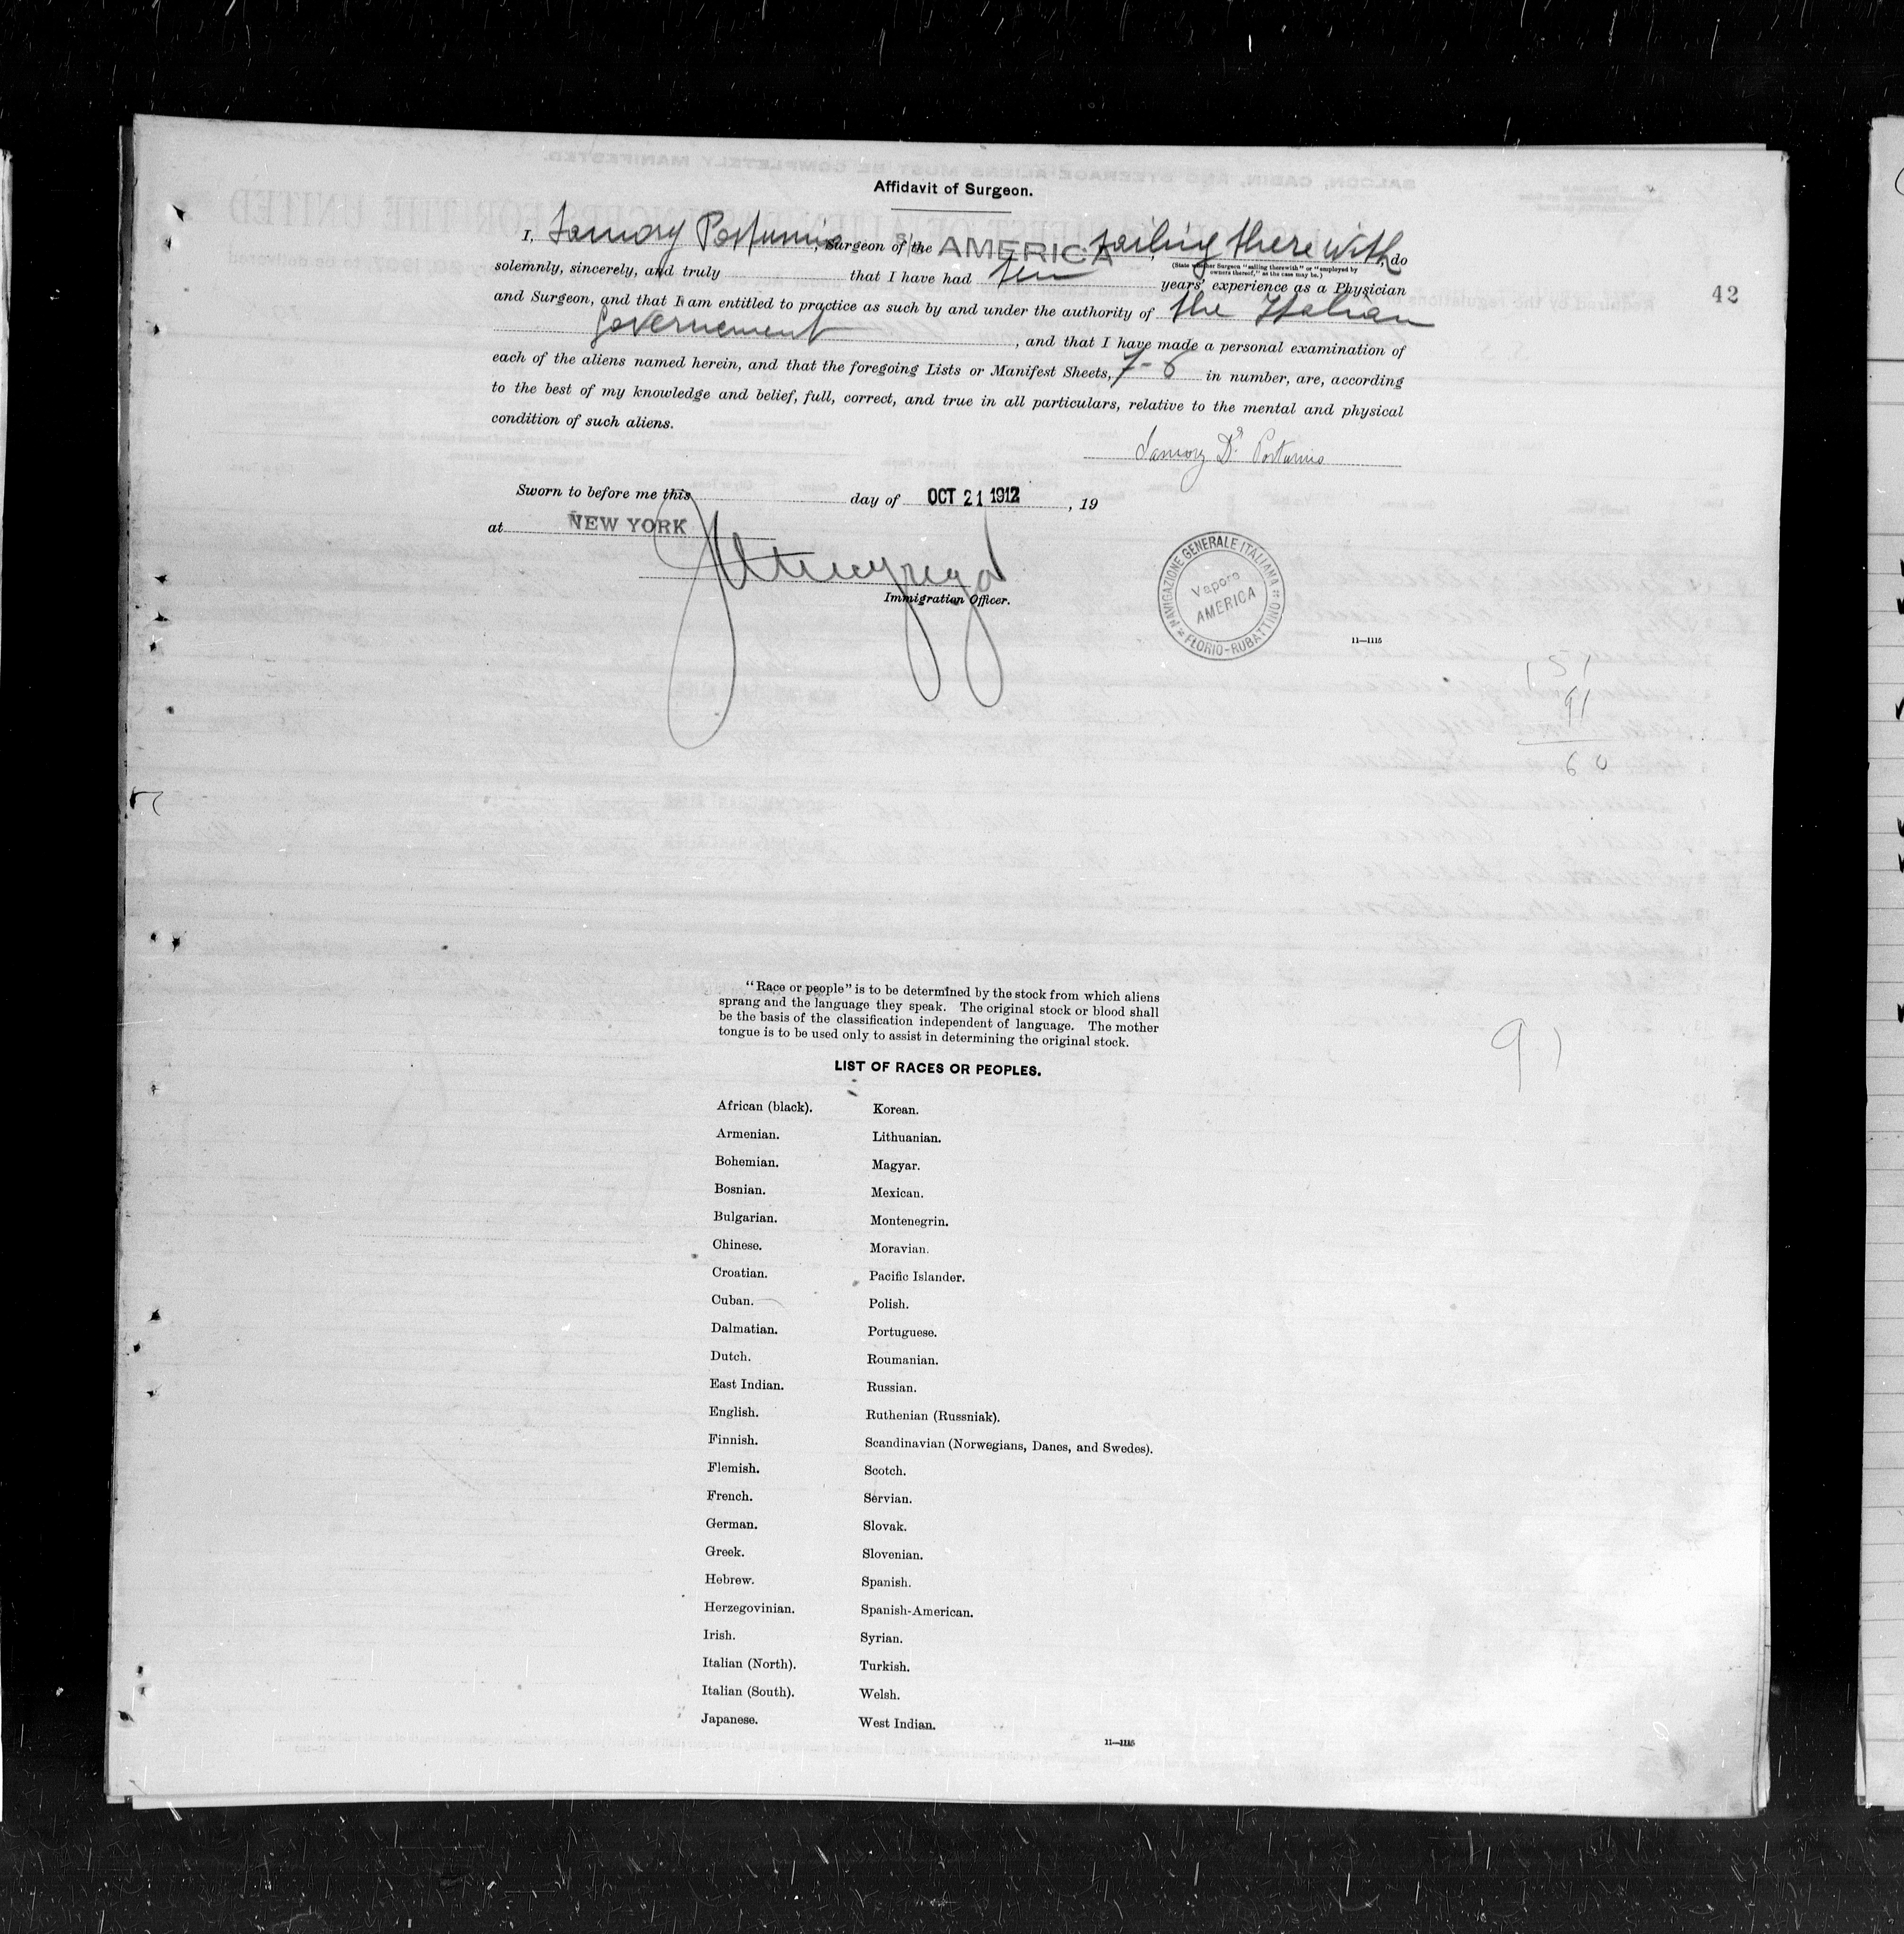 Affidavit of Surgeon.
I, Postumio, Surgeon of the S/S AMERICA, sailing therewith, do
(State whether Surgeon "sailing therewith" or "employed by
owners thereof," as the case may be.)
solemnly, sincerely, and truly that I have had ten years' experience as a Physician
and Surgeon, and that I am entitled to practice as such by and under the authority of the Italian
Governement, and that I have made a personal examination of
each of the aliens named herein, and that the foregoing Lists or Manifest Sheets, 7-6 in number, are, according
to the best of my knowledge and belief, full, correct, and true in all particulars, relative to the mental and physical
condition of such aliens.
42
Dr Postumio
Sworn to before me this day of OCT 21 1912, 19
at NEW YORK
Immigration Officer.
NAVIGAZIONE GENERALE ITALIANA
Vapore
AMERICA
FLORIO-RUBATTINO
11—1115
151
91
60
"Race or people" is to be determined by the stock from which aliens
sprang and the language they speak. The original stock or blood shall
be the basis of the classification independent of language. The mother
tongue is to be used only to assist in determining the original stock.
91
LIST OF RACES OR PEOPLES.
African (black).
Armenian.
Bohemian.
Bosnian.
Bulgarian.
Chinese.
Croatian.
Cuban.
Dalmatian.
Dutch.
East Indian.
English.
Finnish.
Flemish.
French.
German.
Greek.
Hebrew.
Herzegovinian.
Irish.
Italian (North).
Italian (South).
Japanese.
Korean.
Lithuanian.
Magyar.
Mexican.
Montenegrin.
Moravian.
Pacific Islander.
Polish.
Portuguese.
Roumanian.
Russian.
Ruthenian (Russniak).
Scandinavian (Norwegians, Danes, and Swedes).
Scotch.
Servian.
Slovak.
Slovenian.
Spanish.
Spanish-American.
Syrian.
Turkish.
Welsh.
West Indian.
11—1115